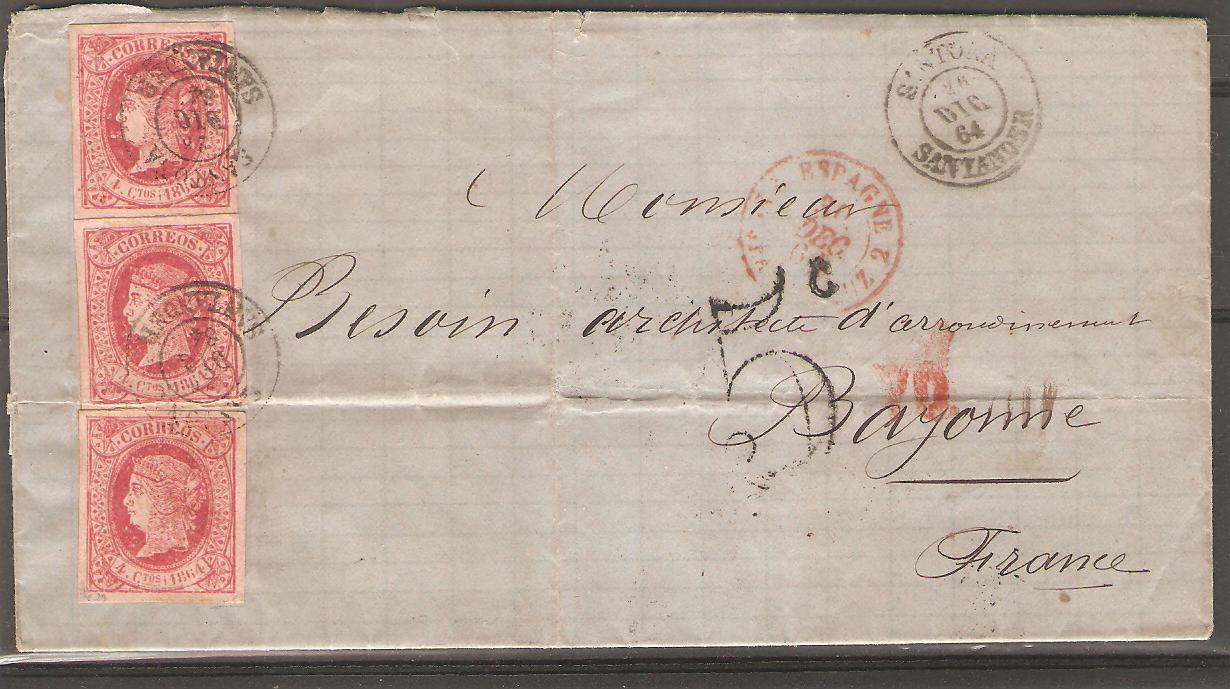 CORREOS
4. CTOS 1864
CORREOS
4. CTOS 1864
CORREOS
4. CTOS 1864
SANTOÑA
26
DIC
64
SANTANDER
ESPAGNE
DEC
2
Monsieur
Besoin architecte d'arrondissement
Bayonne
France
5